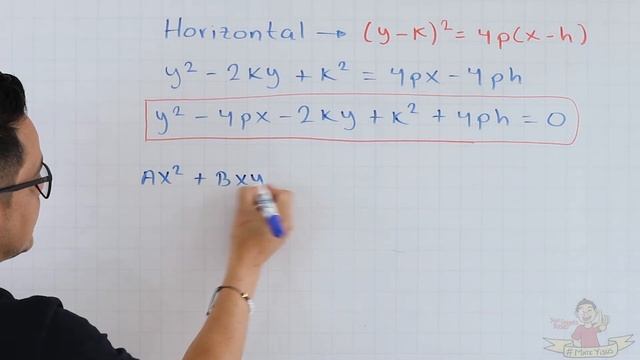 Horizontal → (y-k)² = 4p(x-h)
y² - 2ky + k² = 4px - 4ph
y² - 4px - 2ky + k² + 4ph = 0
Ax² + Bxy
#MateYisus